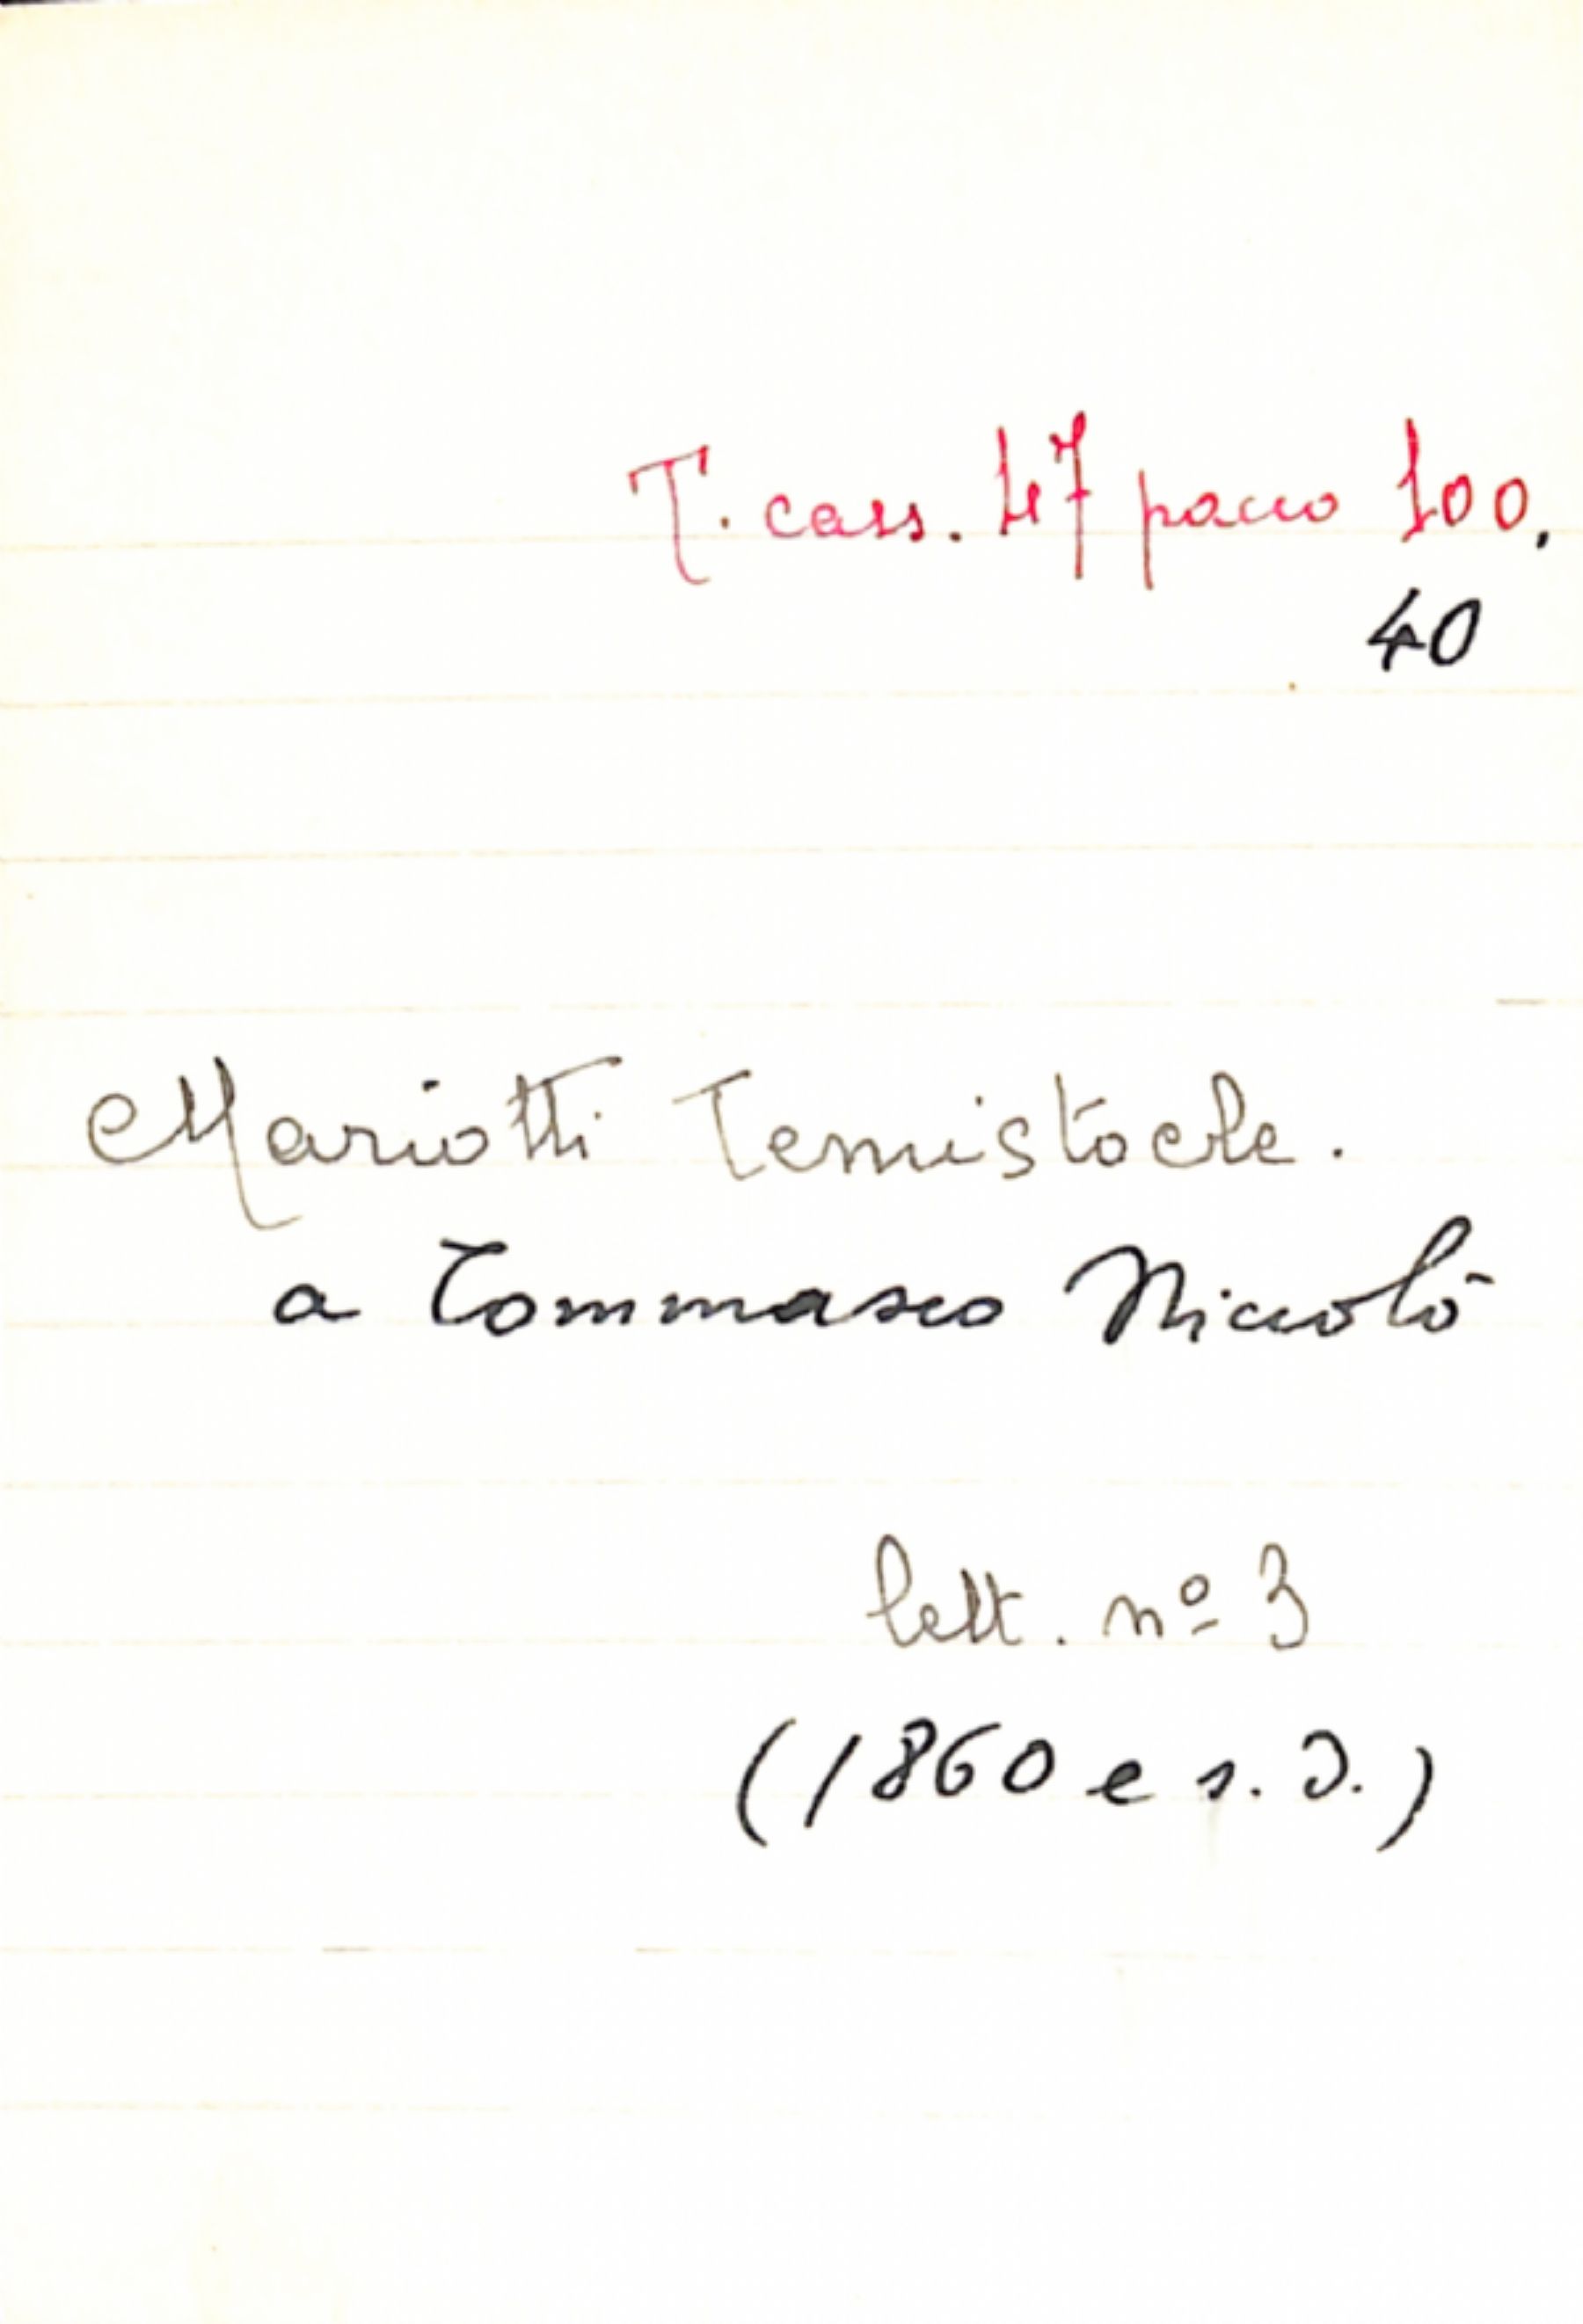 T. cass. 47 pacco 100.
40
Mariotti Temistocle.
a Tommaseo Niccolò
lett. nº 3
(1860 e s. d.)